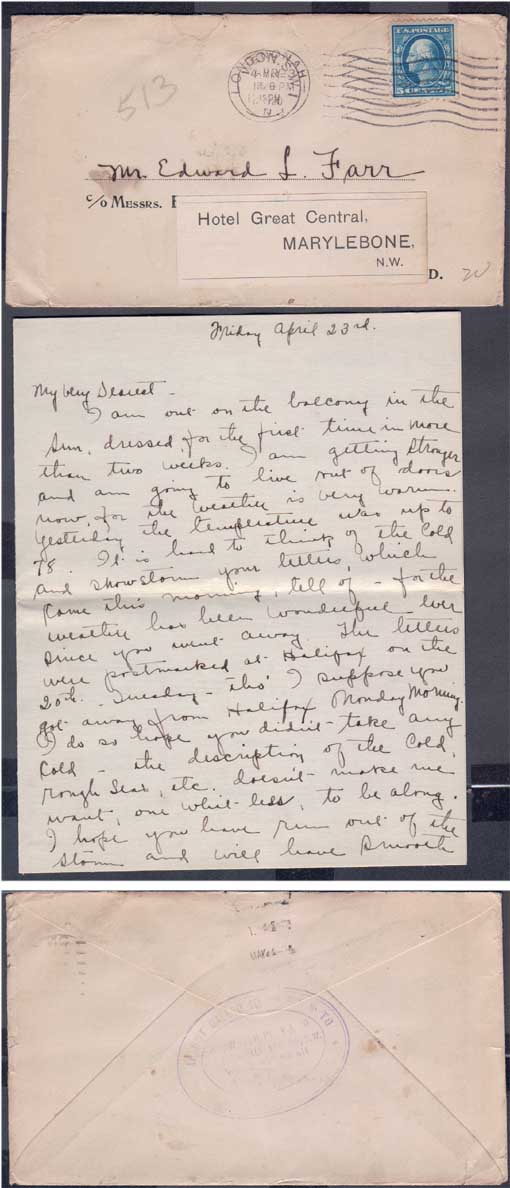 513
U.S. POSTAGE
LONDON, S.W.1
Mr. Edward L. Farr
c/o MESSRS.
Hotel Great Central,
MARYLEBONE,
N.W.
D.
Friday April 23rd.
My very Dearest -
I am out on the balcony in the
sun, dressed, for the first time in more
than two weeks. I am getting stronger
and am going to live out of doors
now, for the weather is very warm.
Yesterday the temperature was up to
78. It is hard to think of the cold
and snowstorm your letters, which
came this morning, tell of - for the
weather has been wonderful ever
since you went away. The letters
were postmarked at Halifax on the
20th - Tuesday - tho' I suppose you
got away from Halifax Monday morning.
I do so hope you didn't take any
cold - the description of the cold,
rough seas, etc. doesn't make me
want, one whit less, to be along.
I hope you have run out of the
storm and will have smooth